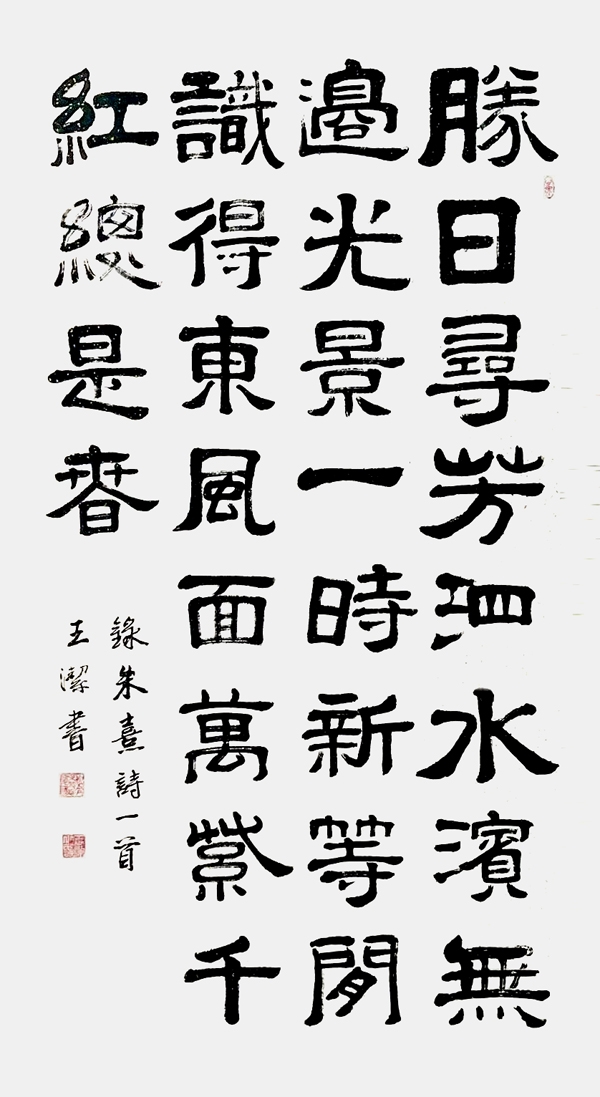 勝日尋芳泗水濱無
邊光景一時新等閒
識得東風面萬紫千
紅總是春
錄朱熹詩一首
王潔書